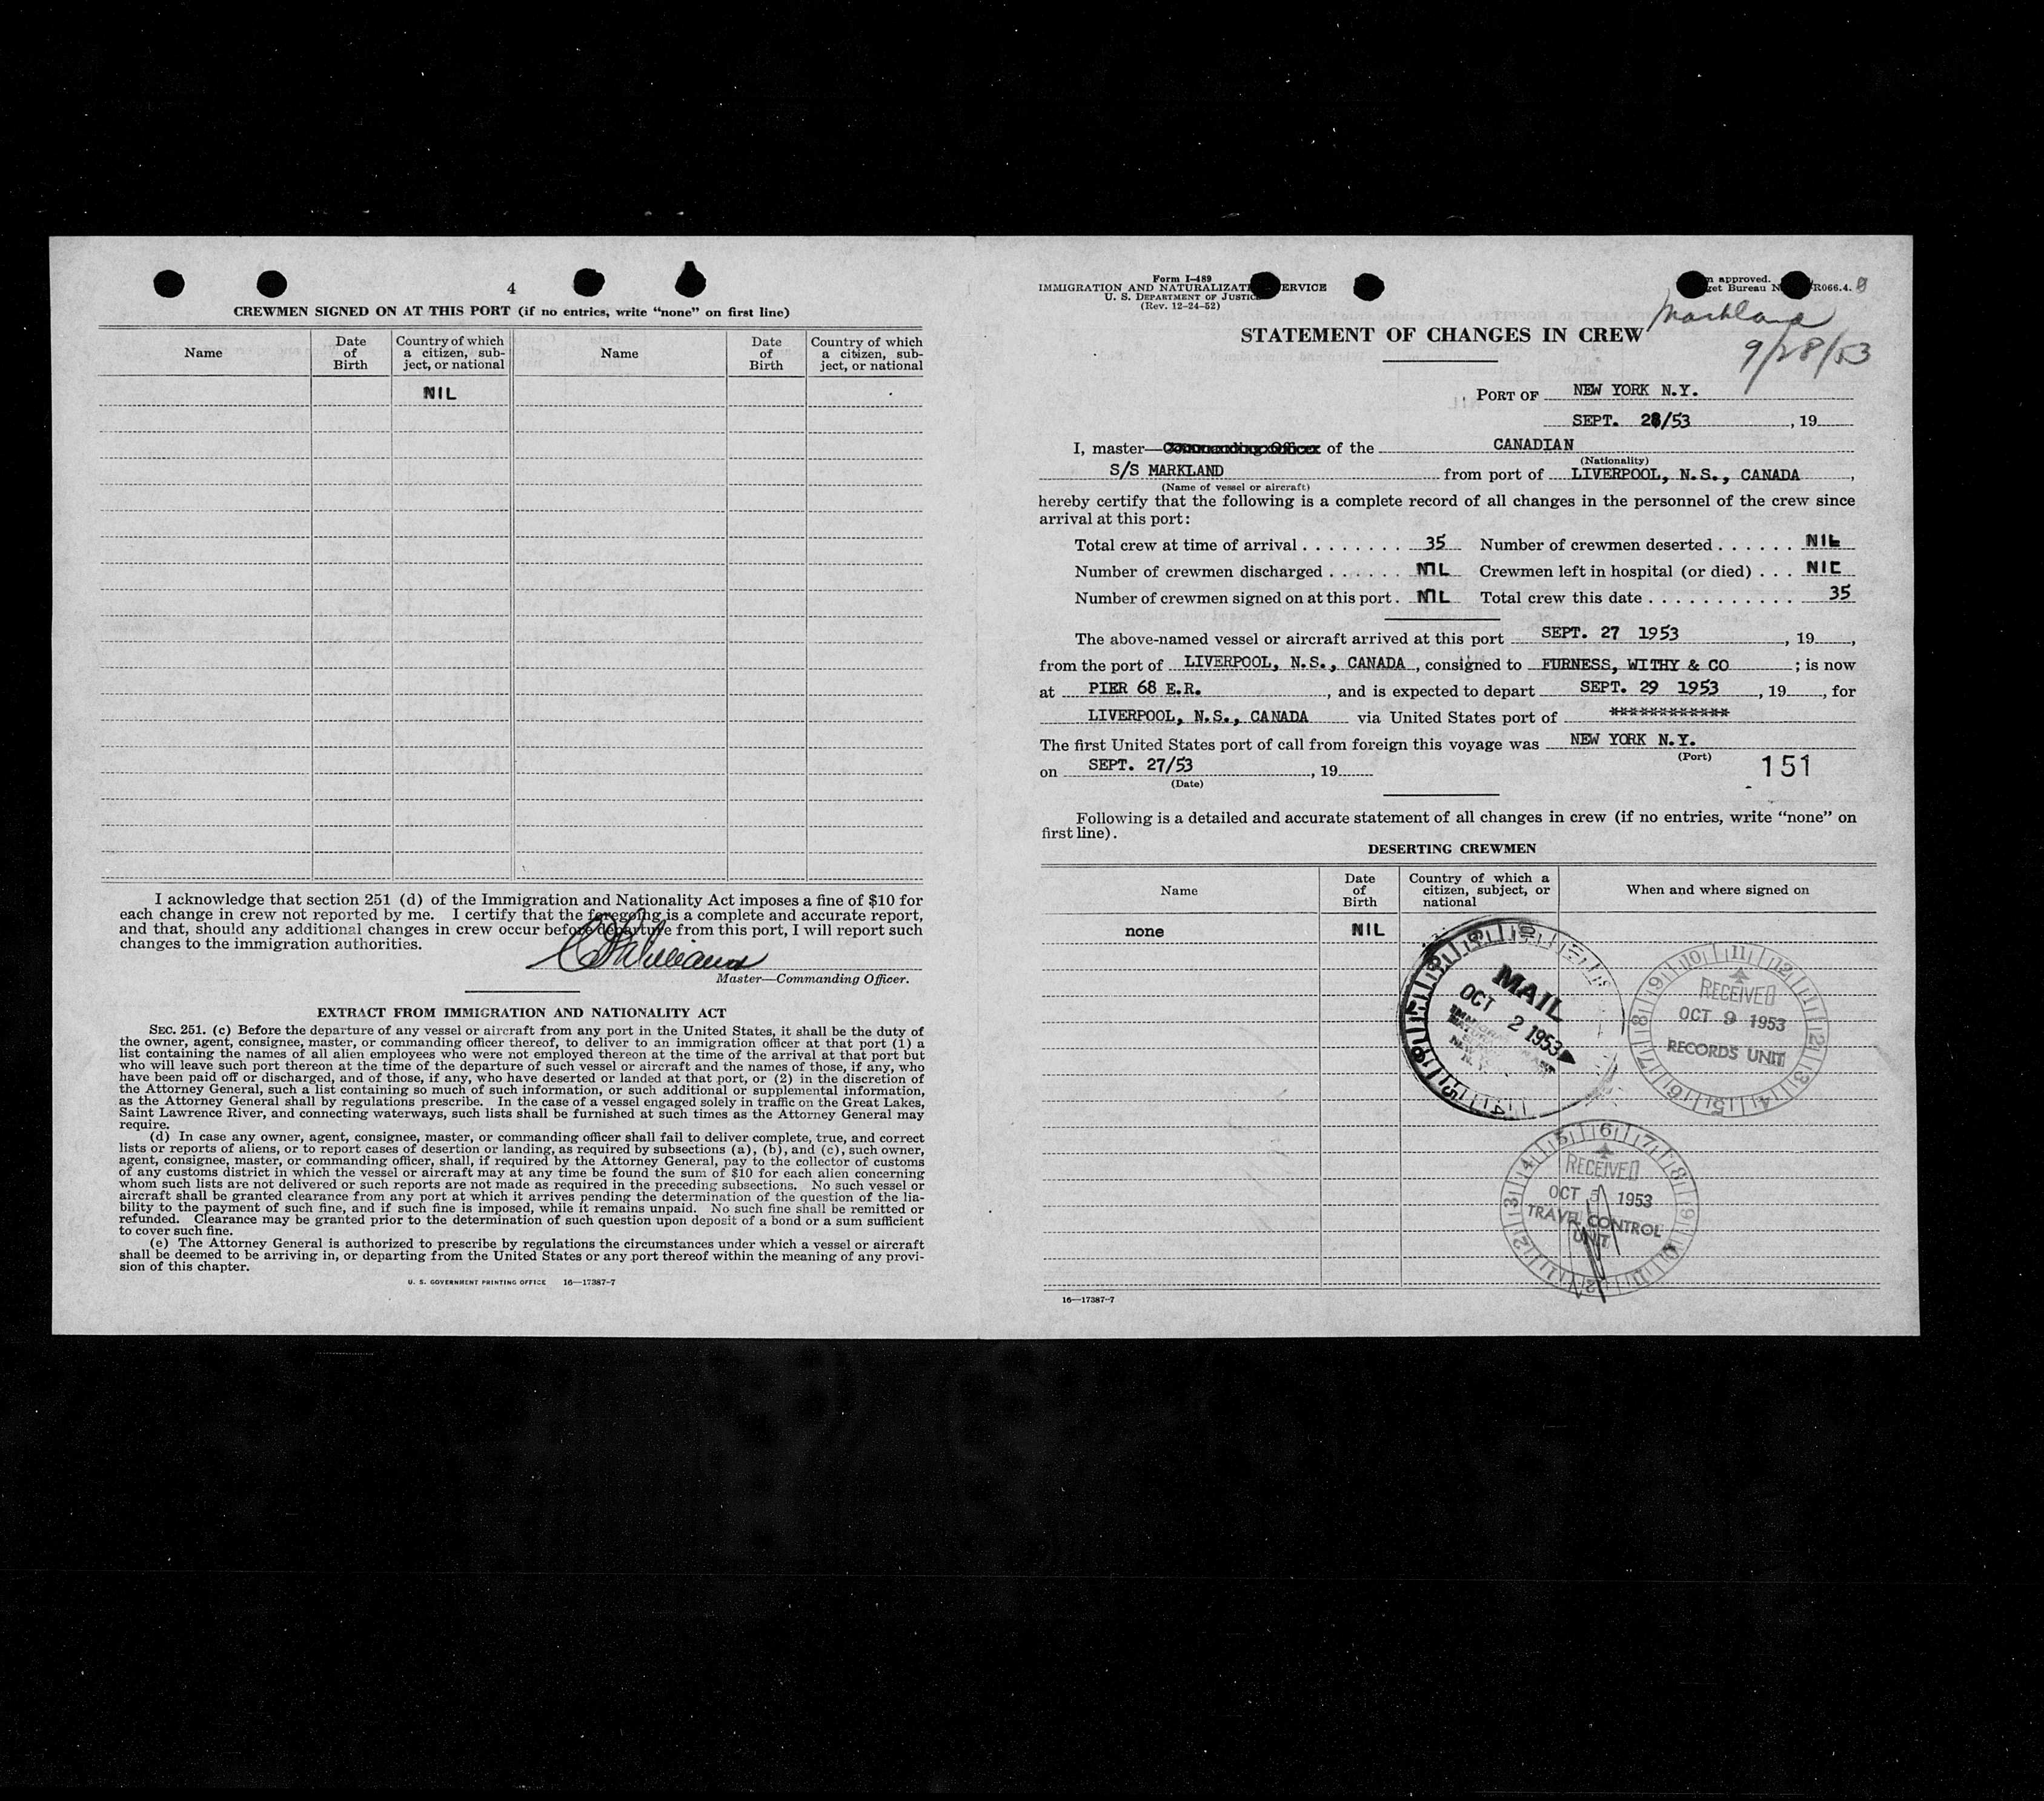 4
CREWMEN SIGNED ON AT THIS PORT (if no entries, write “none” on first line)
Name
Date of Birth
Country of which a citizen, sub-
ject, or national
Name
Date of Birth
Country of which a citizen, sub-
ject, or national
NIL
I acknowledge that section 251 (d) of the Immigration and Nationality Act imposes a fine of $10 for
each change in crew not reported by me. I certify that the foregoing is a complete and accurate report,
and that, should any additional changes in crew occur before departure from this port, I will report such
changes to the immigration authorities.
Master—Commanding Officer.
EXTRACT FROM IMMIGRATION AND NATIONALITY ACT
SEC. 251. (c) Before the departure of any vessel or aircraft from any port in the United States, it shall be the duty of
the owner, agent, consignee, master, or commanding officer thereof, to deliver to an immigration officer at that port (1) a
list containing the names of all alien employees who were not employed thereon at the time of the arrival at that port but
who will leave such port thereon at the time of the departure of such vessel or aircraft and the names of those, if any, who
have been paid off or discharged, and of those, if any, who have deserted or landed at that port, or (2) in the discretion of
the Attorney General, such a list containing so much of such information, or such additional or supplemental information,
as the Attorney General shall by regulations prescribe. In the case of a vessel engaged solely in traffic on the Great Lakes,
Saint Lawrence River, and connecting waterways, such lists shall be furnished at such times as the Attorney General may
require.
(d) In case any owner, agent, consignee, master, or commanding officer shall fail to deliver complete, true, and correct
lists or reports of aliens, or to report cases of desertion or landing, as required by subsections (a), (b), and (c), such owner,
agent, consignee, master, or commanding officer, shall, if required by the Attorney General, pay to the collector of customs
of any customs district in which the vessel or aircraft may at any time be found the sum of $10 for each alien concerning
whom such lists are not delivered or such reports are not made as required in the preceding subsections. No such vessel or
aircraft shall be granted clearance from any port at which it arrives pending the determination of the question of the lia-
bility to the payment of such fine, and if such fine is imposed, while it remains unpaid. No such fine shall be remitted or
refunded. Clearance may be granted prior to the determination of such question upon deposit of a bond or a sum sufficient
to cover such fine.
(e) The Attorney General is authorized to prescribe by regulations the circumstances under which a vessel or aircraft
shall be deemed to be arriving in, or departing from the United States or any port thereof within the meaning of any provi-
sion of this chapter.
U. S. GOVERNMENT PRINTING OFFICE 16—17387-7
Form I-489
IMMIGRATION AND NATURALIZATI SERVICE
U. S. DEPARTMENT OF JUSTICE
(Rev. 12-24-52)
approved.
Bureau R066.4.
Markland
9/28/53
STATEMENT OF CHANGES IN CREW
PORT OF NEW YORK N.Y.
SEPT. 28/53, 19
I, master— of the CANADIAN
(Nationality)
S/S MARKLAND from port of LIVERPOOL, N.S., CANADA,
(Name of vessel or aircraft)
hereby certify that the following is a complete record of all changes in the personnel of the crew since
arrival at this port:
Total crew at time of arrival . . . . . . . . 35 Number of crewmen deserted . . . . . . NIL
Number of crewmen discharged . . . . . . NIL Crewmen left in hospital (or died) . . . NIL
Number of crewmen signed on at this port . NIL Total crew this date . . . . . . . . . . . . 35
The above-named vessel or aircraft arrived at this port SEPT. 27 1953, 19,
from the port of LIVERPOOL, N.S., CANADA, consigned to FURNESS, WITHY & CO; is now
at PIER 68 E.R., and is expected to depart SEPT. 29 1953, 19, for
LIVERPOOL, N.S., CANADA via United States port of ************
The first United States port of call from foreign this voyage was NEW YORK N.Y.
(Port)
on SEPT. 27/53, 19
(Date)
151
Following is a detailed and accurate statement of all changes in crew (if no entries, write “none” on
first line).
DESERTING CREWMEN
Name
Date of Birth
Country of which a citizen, subject, or national
When and where signed on
none NIL
MAIL
OCT 2 1953
RECEIVED
OCT 9 1953
RECORDS UNIT
RECEIVED
OCT 1953
TRAVEL CONTROL
UNIT
16—17387-7